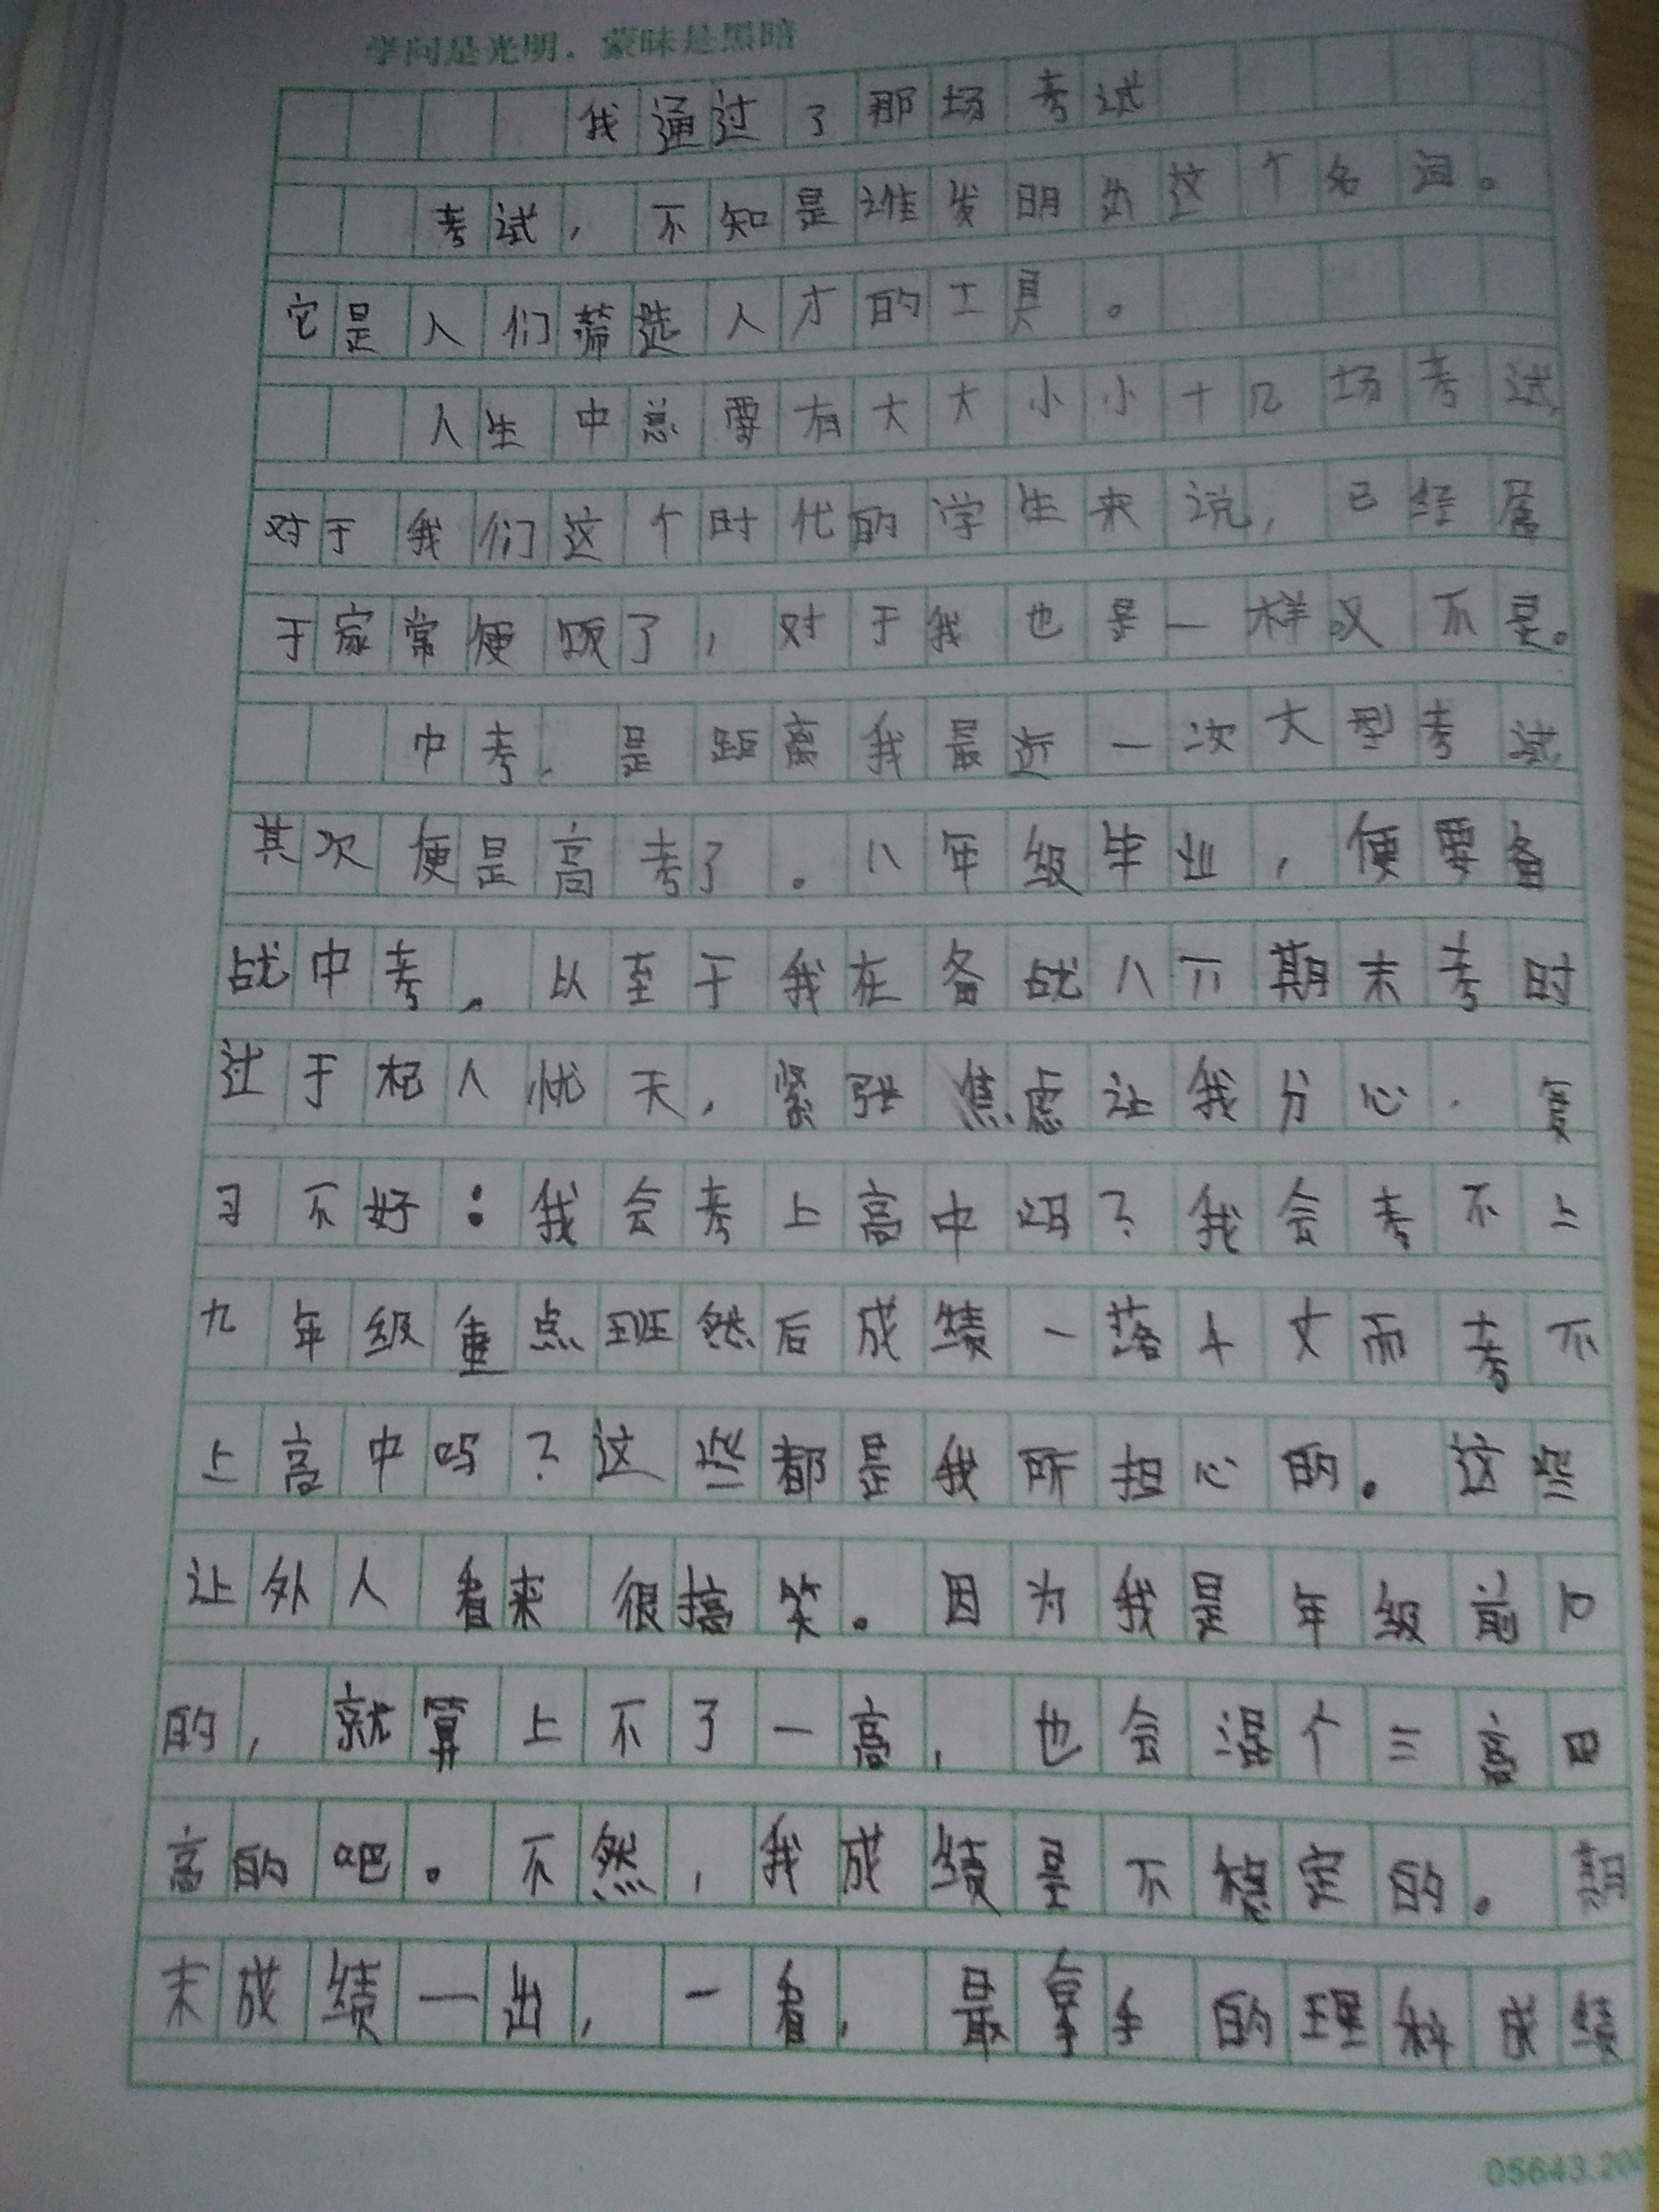 学问是光明，蒙昧是黑暗
我通过了那场考试
考试，不知是谁发明出这个名词。
它是人们筛选人才的工具。
人生中总要有大大小小十几场考试，
对于我们这个时代的学生来说，已经属
于家常便饭了，对于我也是一样又不是。
中考，是距离我最近一次大型考试，
其次便是高考了。八年级毕业，便要备
战中考。以至于我在备战八下期末考时
过于杞人忧天，紧张焦虑让我分心，复
习不好：我会考上高中吗？我会考不上
九年级重点班然后成绩一落千丈而考不
上高中吗？这些都是我所担心的。这些
让外人看来很搞笑。因为我是年级前50
的，就算上不了一高，也会混个三高四
高的吧。不然，我成绩是不稳定的。期
末成绩一出，一看，最拿手的理科成绩
05643.200